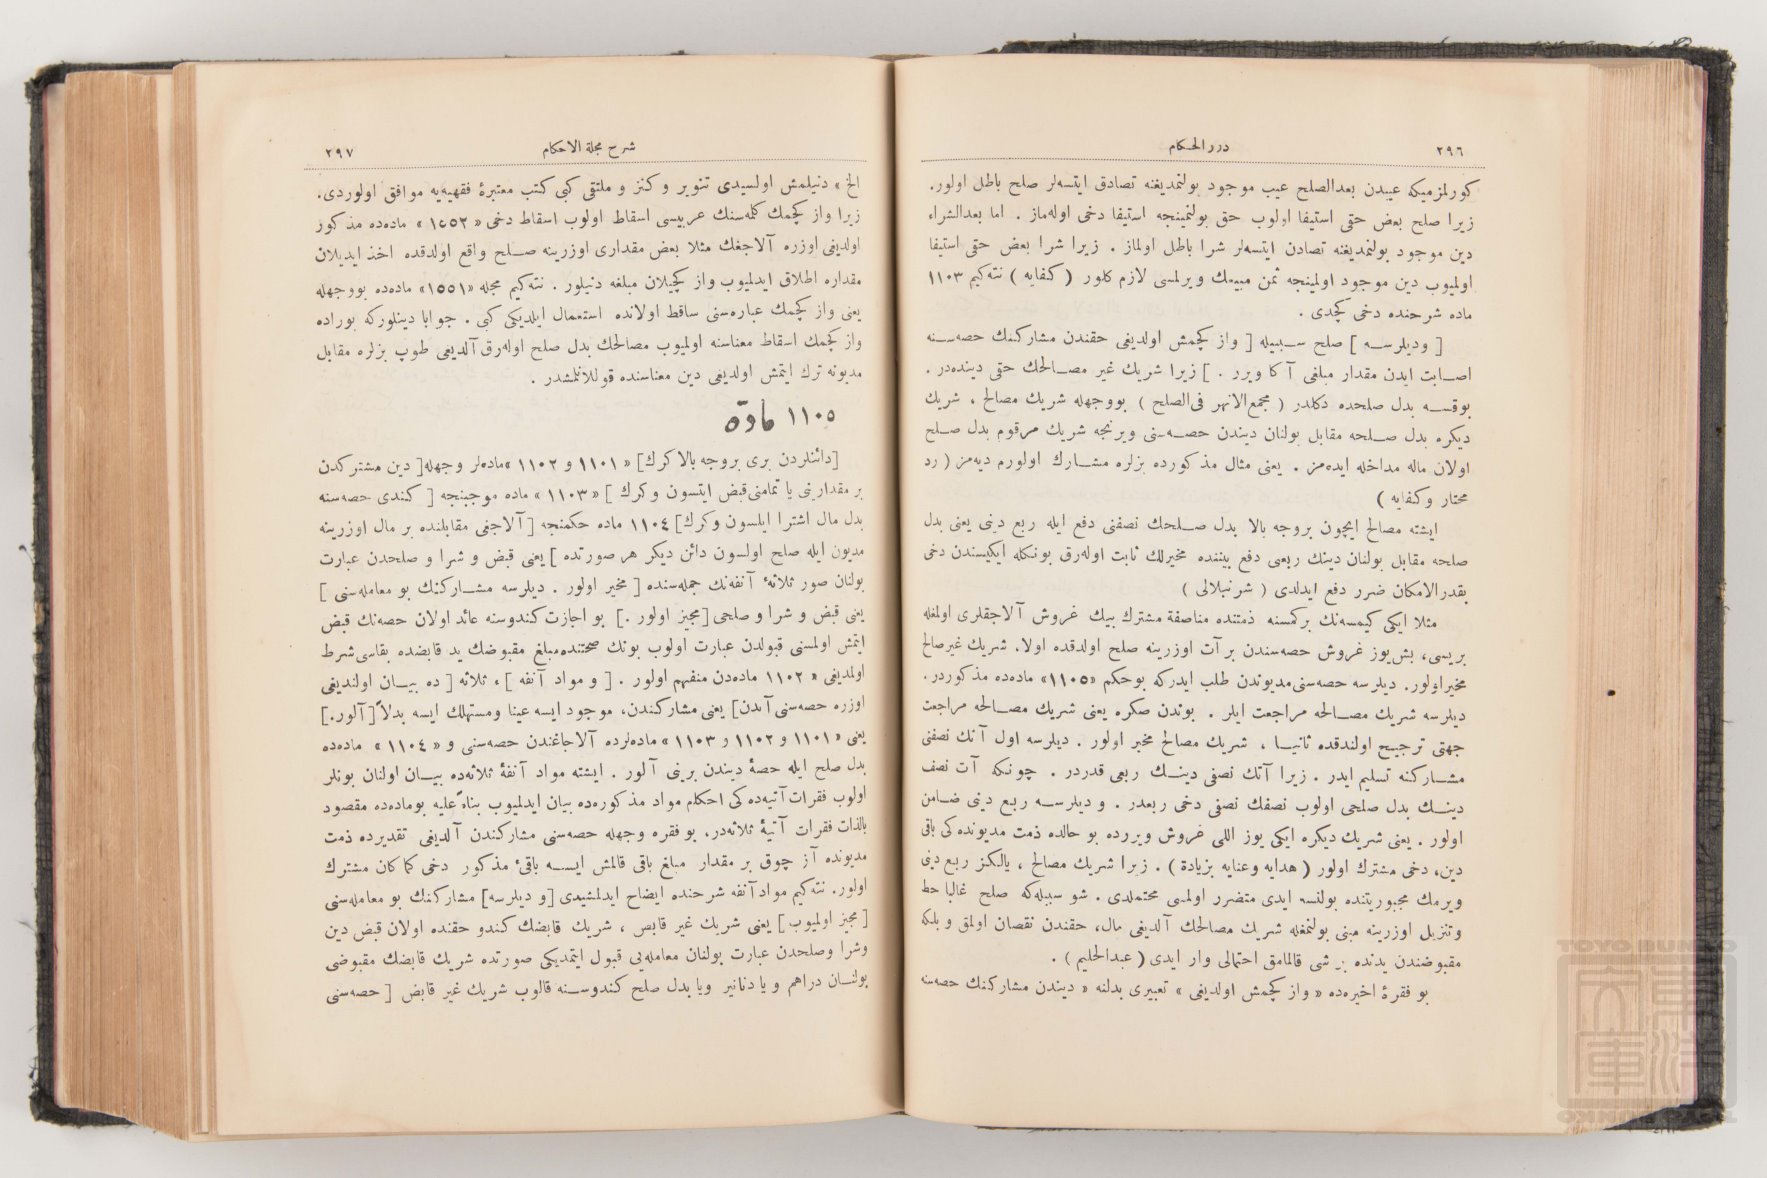 ٢٩٦
درر الحكام
كورلمزميكه عيبدن بعدالصلح عيب موجود بولنمديغنه تصادق ايتسه‌لر صلح باطل اولور.
زيرا صلح بعض حقى استيفا اولوب حق بولنمينجه استيفا دخى اوله‌ماز . اما بعدالشراء
دين موجود بولنمديغنه تصادق ايتسه‌لر شرا باطل اولماز . زيرا شرا بعض حقى استيفا
اولميوب دين موجود اولمينجه ثمن مبيعك ويرلمسى لازم كلور ( كفايه ) نته‌كيم ١١٠٣
ماده شرحنده دخى كچدى .
[ وديلرسه ] صلح سببيله [ واز كچمش اولديغى حقندن مشاركنك حصه‌سنه
اصابت ايدن مقدار مبلغى آكا ويرر . ] زيرا شريك غير مصالحك حتى دينده‌در .
يوقسه بدل صلحده دكلدر ( مجمع‌الانهر فى‌الصلح ) بووجهله شريك مصالح ، شريك
ديكره بدل صلحه مقابل بولنان ديندن حصه‌سنى ويرنجه شريك مرقوم بدل صلح
اولان ماله مداخله ايده‌مز . يعنى مثال مذكورده بزلره مشارك اولورم ديه‌مز ( رد
مختار وكفايه )
ايشته مصالح ايچون بروجه بالا بدل صلحك نصفنى دفع ايله ربع دينى يعنى بدل
صلحه مقابل بولنان دينك ربعى دفع بيننده مخيرلك ثابت اوله‌رق بونكله ايكيسندن دخى
بقدرالامكان ضرر دفع ايدلدى ( شرنبلالى )
مثلا ايكى كيمسه‌نك بركمسنه ذمتنده مناصفة مشترك بيك غروش آلاجقلرى اولمغله
بريسى، بش‌يوز غروش حصه‌سندن بر آت اوزرينه صلح اولدقده اولا، شريك غيرصالح
مخيراولور. ديلرسه حصه‌سنى‌مديوندن طلب ايدركه بوحكم «١١٠٥» ماده‌ده مذكوردر.
ديلرسه شريك مصالحه مراجعت ايلر . بوندن صكره يعنى شريك مصالحه مراجعت
جهتى ترجيح اولندقده ثانيا ، شريك مصالح مخير اولور . ديلرسه اول آتك نصفنى
مشاركنه تسليم ايدر . زيرا آتك نصفى دينك ربعى قدردر . چونكه آت نصف
دينك بدل صلحى اولوب نصفك نصفى دخى ربعدر . و ديلرسه ربع دينى ضامن
اولور . يعنى شريك ديكره ايكى يوز اللى غروش ويررده بو حالده ذمت مديونده‌كى باقى
دين، دخى مشترك اولور ( هدايه وعنايه بزيادة ) . زيرا شريك مصالح ، يالكز ربع دينى
ويرمك مجبوريتنده بولنسه ايدى متضرر اولمسى محتملدى . شو سببله‌كه صلح غالبا حط
وتنزيل اوزرينه مبنى بولنمغله شريك مصالحك آلديغى مال، حقندن نقصان اولمق و بلكه
مقبوضندن يدنده بر شى قالمامق احتمالى وار ايدى ( عبدالحليم ) .
بو فقرهٔ اخيره‌ده « واز كچمش اولديغى » تعبيرى بدلنه « ديندن مشاركنك حصه‌سنه
شرح مجلة الاحكام
٢٩٧
الخ » دنيلمش اولسيدى تنوير و كنز و ملتقى كبى كتب معتبرهٔ فقهيه‌يه موافق اولوردى.
زيرا واز كچمك كله‌سنك عربيسى اسقاط اولوب اسقاط دخى «١٥٥٢» ماده‌ده مذكور
اولديغى اوزره آلاجغك مثلا بعض مقدارى اوزرينه صلح واقع اولدقده اخذ ايديلان
مقداره اطلاق ايدلميوب واز كچيلان مبلغه دنيلور . نته‌كيم مجله «١٥٥١» ماده‌ده بووجهله
يعنى واز كچمك عباره‌سنى ساقط اولانده استعمال ايلديكى كبى . جوابا دينلوركه بوراده
واز كچمك اسقاط معناسنه اولميوب مصالحك بدل صلح اوله‌رق آلديغى طوپ بزلره مقابل
مديونه ترك ايتمش اولديغى دين معناسنده قوللانلمشدر .
١١٠٥ ماده
[دائنلردن برى بروجه بالا كرك] «١١٠١ و ١١٠٢ »ماده‌لر وجهله[ دين مشتركدن
بر مقدارينى يا تمامنى‌قبض ايتسون وكرك ] «١١٠٣» ماده موجبنجه [ كندى حصه‌سنه
بدل مال اشترا ايلسون وكرك] ١١٠٤ ماده حكمنجه [ آلاجغى مقابلنده بر مال اوزرينه
مديون ايله صلح اولسون دائن ديكر هر صورتده ] يعنى قبض و شرا و صلحدن عبارت
بولنان صور ثلاثهٔ آنفه‌نك جمله‌سنده [ مخير اولور . ديلرسه مشاركنك بو معامله‌سنى ]
يعنى قبض و شرا و صلحى [مجيز اولور .] بو اجازت كندوسنه عائد اولان حصه‌نك قبض
ايتمش اولمسنى قبولدن عبارت اولوب بونك صحتنده‌مبلغ مقبوضك يد قابضده بقاسى‌شرط
اولمديغى « ١١٠٢ ماده‌دن منفهم اولور . [ و مواد آنفه ]، ثلاثه [ ده بيان اولنديغى
اوزره حصه‌سنى آندن] يعنى مشاركندن، موجود ايسه عينا ومستهلك ايسه بدلاً [آلور.]
يعنى «١١٠١ و ١١٠٢ و ١١٠٣» ماده‌لرده آلاجاغندن حصه‌سنى و « ١١٠٤ » ماده‌ده
بدل صلح ايله حصهٔ ديندن برينى آلور . ايشته مواد آنفهٔ ثلاثه‌ده بيان اولنان بونلر
اولوب فقرات آتيه‌ده كى احكام مواد مذكوره‌ده بيان ايدلميوب بناءً عليه بوماده‌ده مقصود
بالذات فقرات آتيهٔ ثلاثه‌در. بو فقره وجهله حصه‌سنى مشاركندن آلديغى تقديرده ذمت
مديونده آز چوق بر مقدار مبلغ باقى قالمش ايسه باقىٔ مذكور دخى كما كان مشترك
اولور. نته‌كيم مواد آنفه شرحنده ايضاح ايدلمشيدى [و ديلرسه] مشاركنك بو معامله‌سنى
[ مجيز اولميوب ] يعنى شريك غير قابض ، شريك قابضك كندو حقنده اولان قبض دين
وشرا وصلحدن عبارت بولنان معامله‌يى قبول ايتمديكى صورتده شريك قابضك مقبوضى
بولنان دراهم و يا دنانير ويا بدل صلح كندوسنه قالوب شريك غير قابض [ حصه‌سنى
TOYO BUNKO